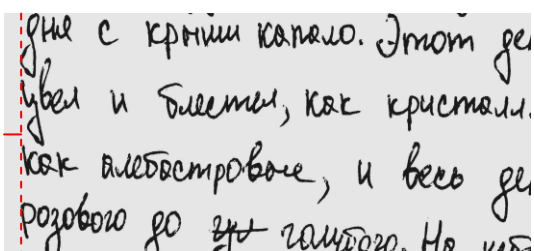 дня с крыши капало. Этот де
цвел и блестел, как кристалл.
как алебастровые, и весь де
розового до голубого. На неб